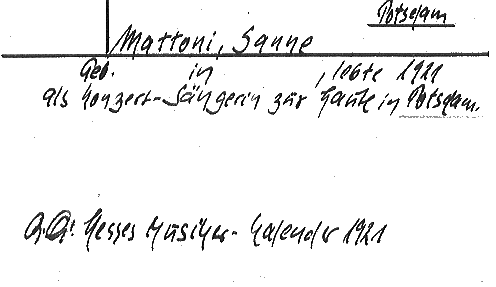 Potsdam
Mattoni, Sanne
Geb. in , lebte 1921
als Konzert-Sängerin zur Laute in Potsdam.
Q.Q: Hesses Musiker-Kalender 1921